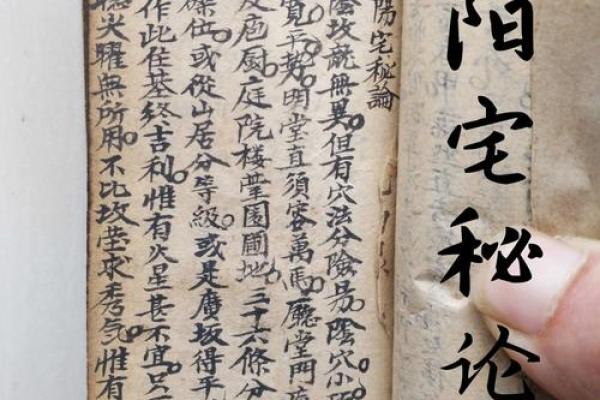 阳宅秘论
陽宅秘論
陰坟龍無異但有穴法分險易陰穴小
寬平势明堂直須容萬馬廳堂門
庖厨庭院楼臺園圃地三十六條分
位或從山居分等級或是廣坂得平
作此住基終吉利惟有火星甚不宜只
火曜無所用不比坟茔求秀气惟有